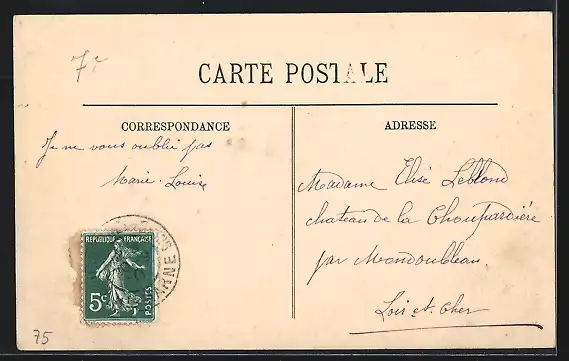 7c
CARTE POSTALE
CORRESPONDANCE
Je ne vous oublie pas
Marie-Louise
ADRESSE
Madame Elise Leblond
chateau de la
par Mondoubleau
Loir et Cher
REPUBLIQUE FRANÇAISE
5c
POSTES
MARNE
75